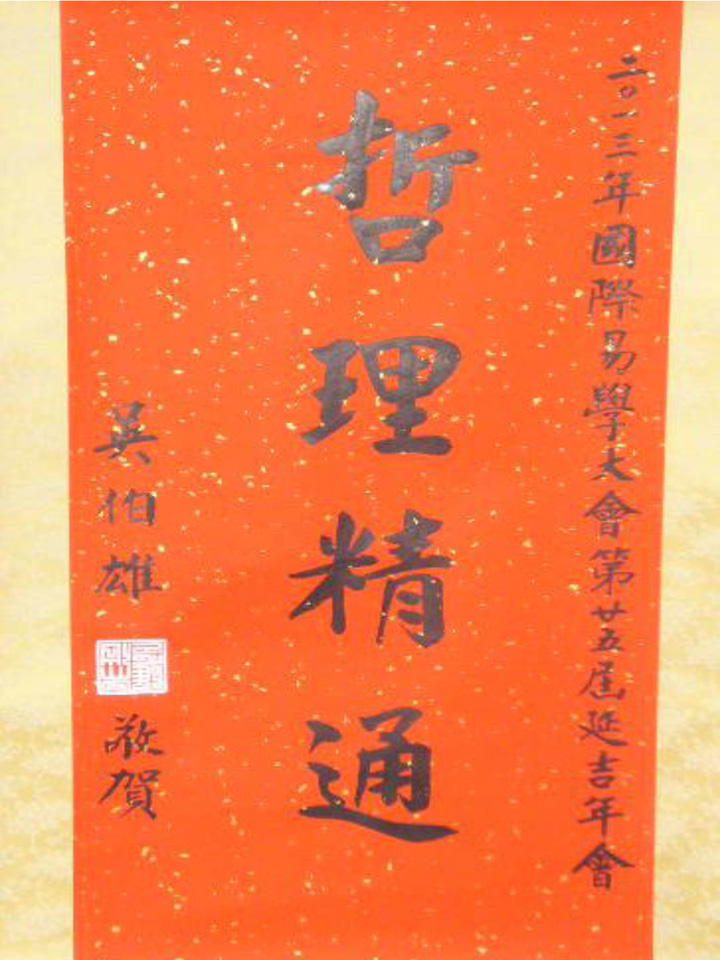 二○一三年國際易學大會第廿五屆延吉年會
哲理精通
吳伯雄
敬賀